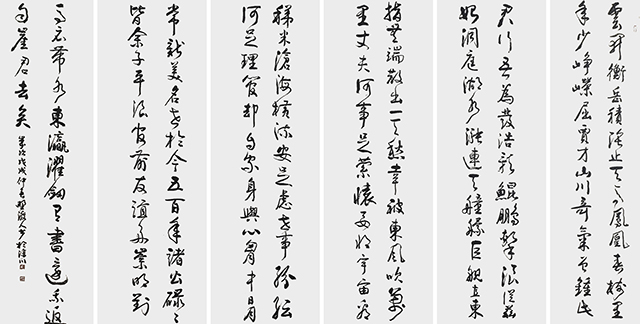 雲開衡岳積陰止天馬鳳凰春樹里
年少崢嶸屈賈才山川奇氣曾鍾此
君行吾為發浩歌鯤鵬擊浪從茲
始洞庭湘水漲連天艟艨巨艦直東
指無端散出一天愁幸被東風吹萬
里丈夫何事足縈懷要將宇宙看
稊米滄海橫流安足慮世事紛紜
何足理管却自家身與心胸中日月
常新美名世於今五百年諸公碌碌
皆余子平浪宮前友誼多崇明對
馬衣帶水東瀛濯劍有書還我返
自崖君去矣
戊戌仲春